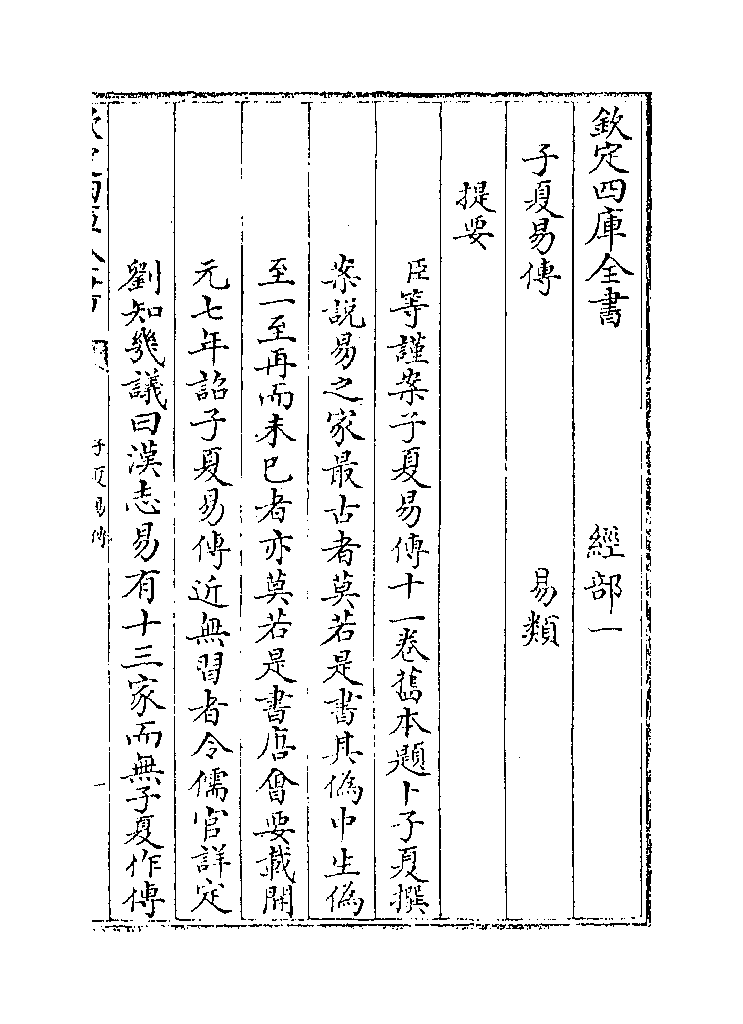 欽定四庫全書 經部一
子夏易傳 易類
提要
臣等謹案子夏易傳十一卷舊本題卜子夏撰
案説易之家最古者莫若是書其偽中生偽
至一至再而未已者亦莫若是書唐㑹要載開
元七年詔子夏易傳近無習者令儒官詳定
劉知幾議曰漢志易有十三家而無子夏作傳
子夏易傳
一